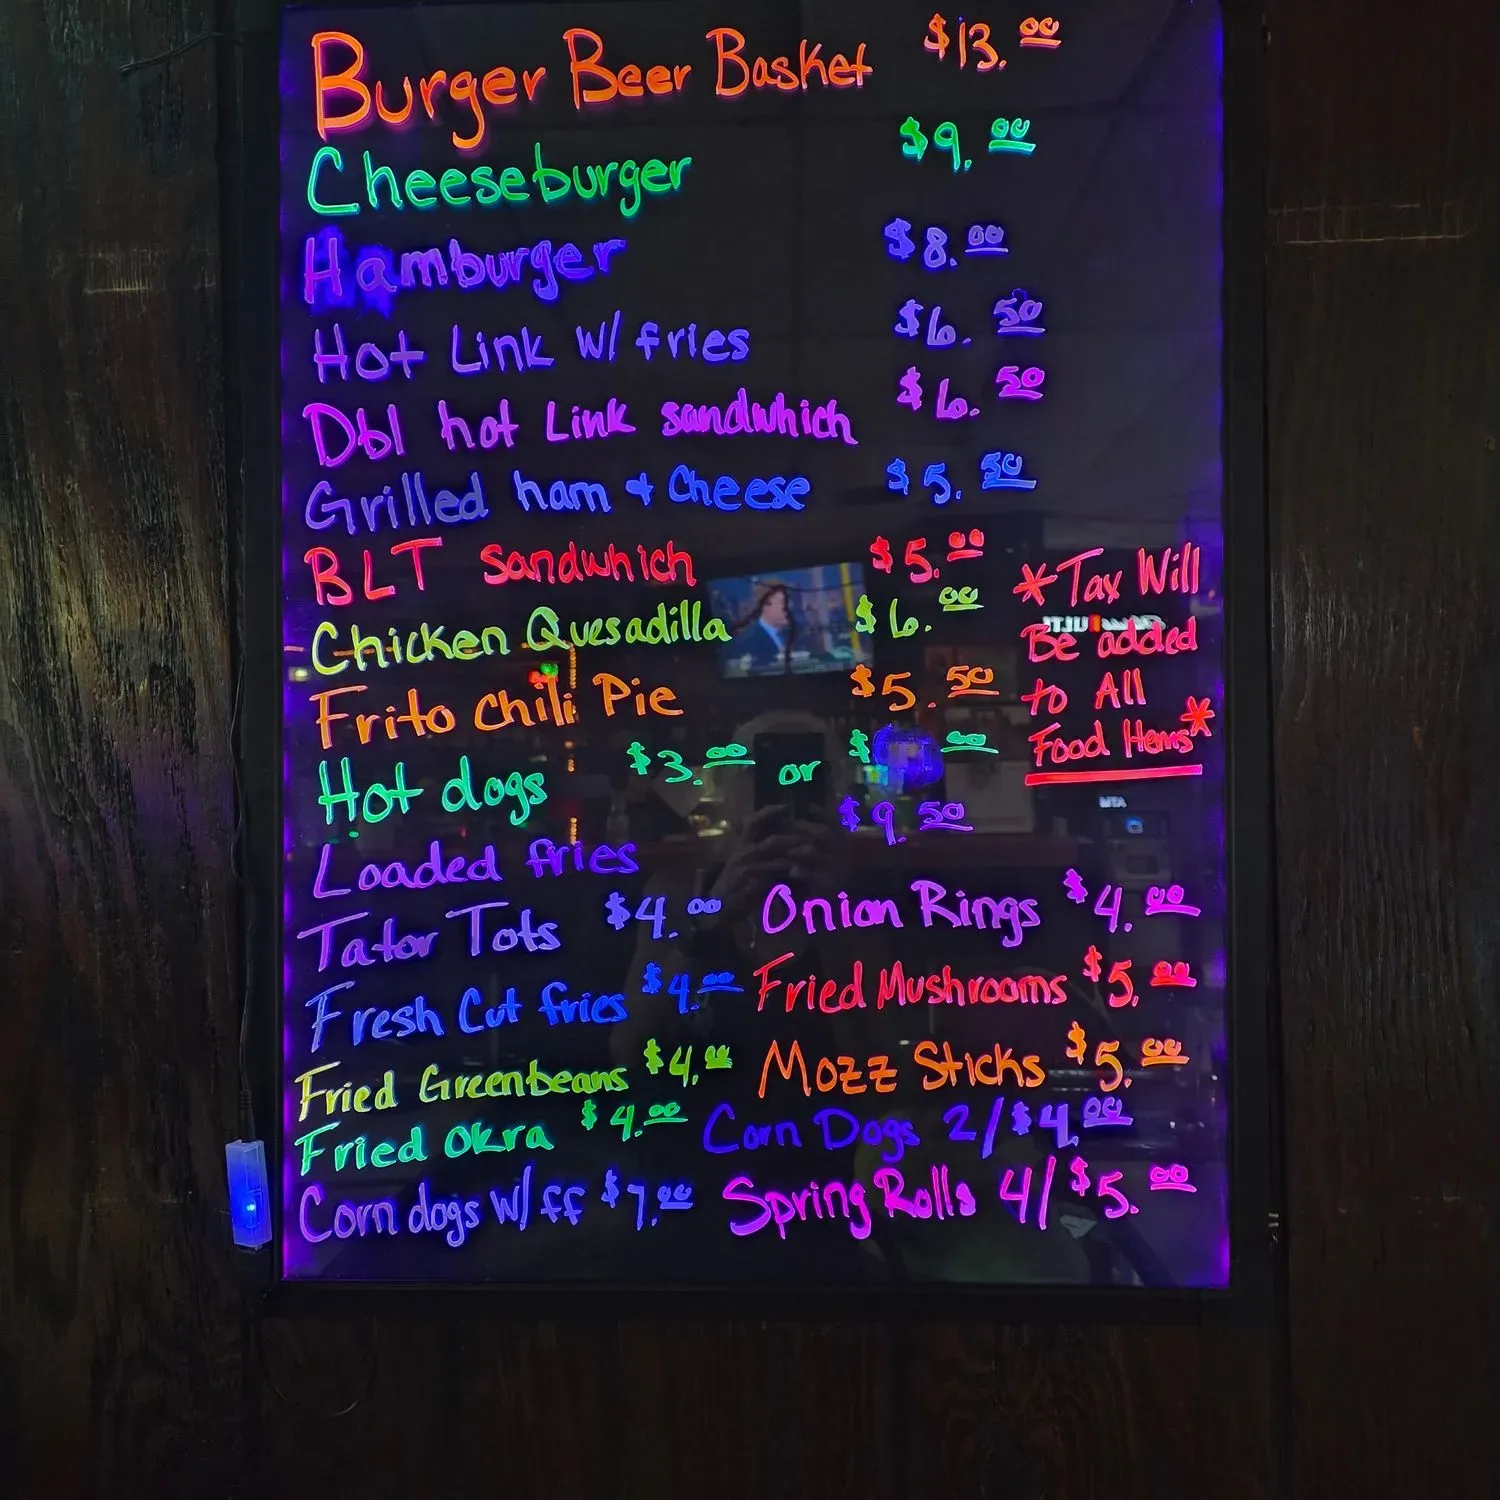 Burger Beer Basket $13.00
Cheeseburger $9.00
Hamburger $8.00
Hot Link w/ fries $6.50
Dbl hot Link sandwhich $6.50
Grilled ham + Cheese $5.50
BLT sandwhich $5.00
Chicken Quesadilla $6.00
Frito Chili Pie $5.50
Hot dogs $3.00 or $ 00
Loaded fries $9.50
*Tax Will
Be added
to All
Food Items*
Tator Tots $4.00 Onion Rings $4.00
Fresh Cut fries $4.00 Fried Mushrooms $5.00
Fried Greenbeans $4.00 Mozz Sticks $5.00
Fried Okra $4.00 Corn Dogs 2/$4.00
Corn dogs w/ ff $7.00 Spring Rolls 4/$5.00